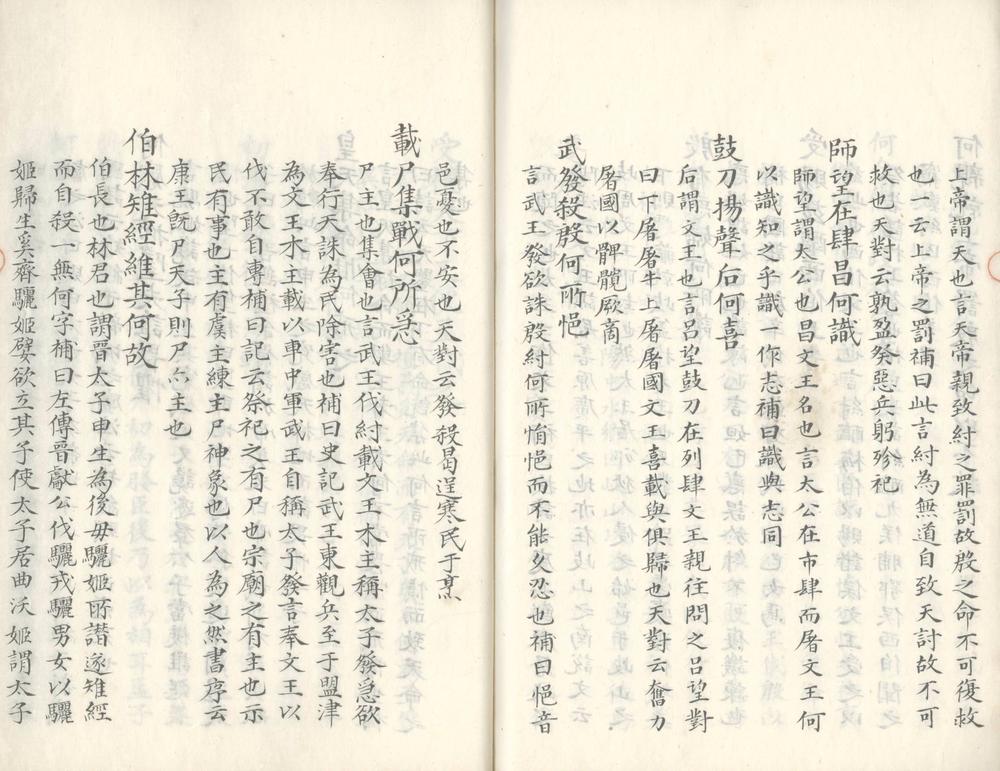 上帝謂天也言天帝親致紂之罪罰故殷之命不可復救
也一云上帝之罰補曰此言紂為無道自致天討故不可
救也天對云孰盈癸惡兵躬殄祀
師望在肆昌何識
師望謂太公也昌文王名也言太公在市肆而屠文王何
以識知之乎識一作志補曰識與志同
鼓刀揚聲后何喜
后謂文王也言呂望鼓刀在列肆文王親往問之呂望對
曰下屠屠牛上屠屠國文王喜載與俱歸也天對云奮力
屠國以髀髖厥商
武發殺殷何所悒
言武王發欲誅殷紂何所悁悒而不能久忍也補曰悒音
邑憂也不安也天對云發殺曷逞寒民于烹
載尸集戰何所急
尸主也集會也言武王伐紂載文王木主稱太子發急欲
奉行天誅為民除害也補曰史記武王東觀兵至于盟津
為文王木主載以車中軍武王自稱太子發言奉文王以
伐不敢自專補曰記云祭祀之有尸也宗廟之有主也示
民有事也主有虞主練主尸神象也以人為之然書序云
康王既尸天子則尸亦主也
伯林雉經維其何故
伯長也林君也謂晉太子申生為後母驪姬所譖遂雉經
而自殺一無何字補曰左傳晉獻公伐驪戎驪男女以驪
姬歸生奚齊驪姬嬖欲立其子使太子居曲沃姬謂太子